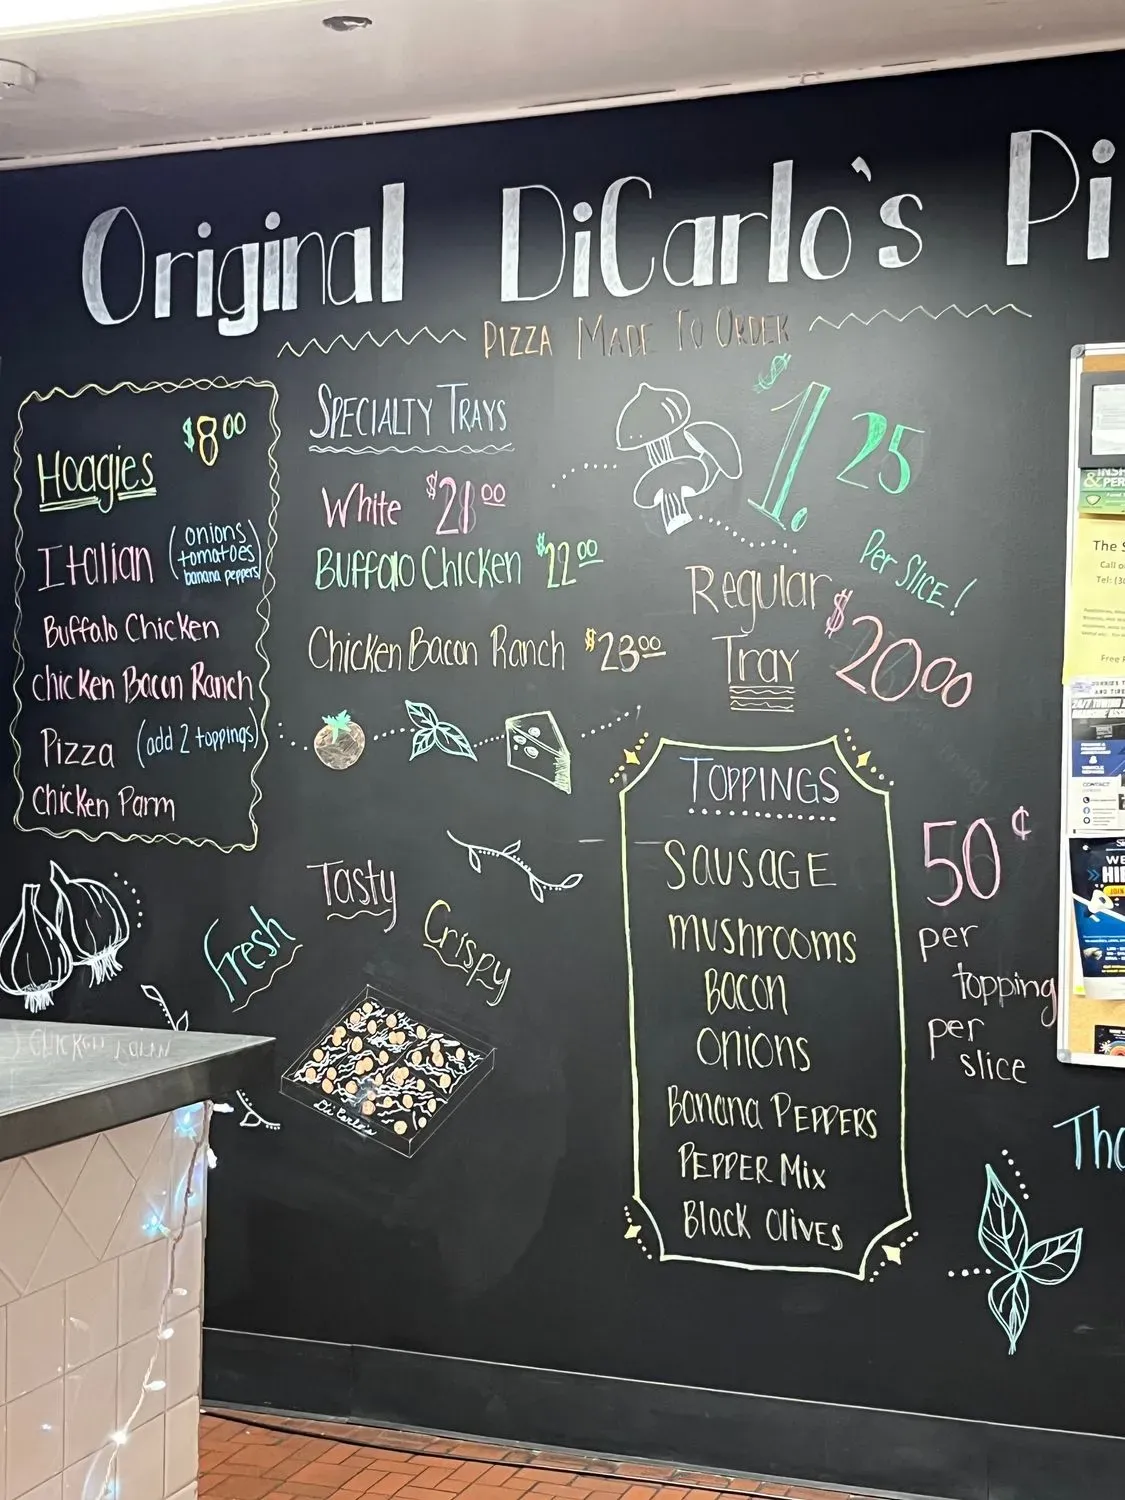 Original DiCarlo's Pi
PIZZA MADE TO ORDER
$8.00
Hoagies
Italian (onions
tomatoes
banana peppers)
Buffalo Chicken
chicken Bacon Ranch
Pizza (add 2 toppings)
Chicken Parm
SPECIALTY TRAYS
White $21.00
BUFFalo CHICKEN $22.00
Chicken Bacon Ranch $23.00
$1.25
Per SLICE!
Regular
Tray $20.00
TOPPINGS
SAUSAGE
mushrooms
BACON
Onions
Banana PEPPERS
PEPPER Mix
Black Olives
50¢
per
topping
per
slice
Fresh
Tasty
Crispy
DiCarlo's
CHICKEN PARM
Tha
The S
Call o
Tel: (30
Free
WE
HI